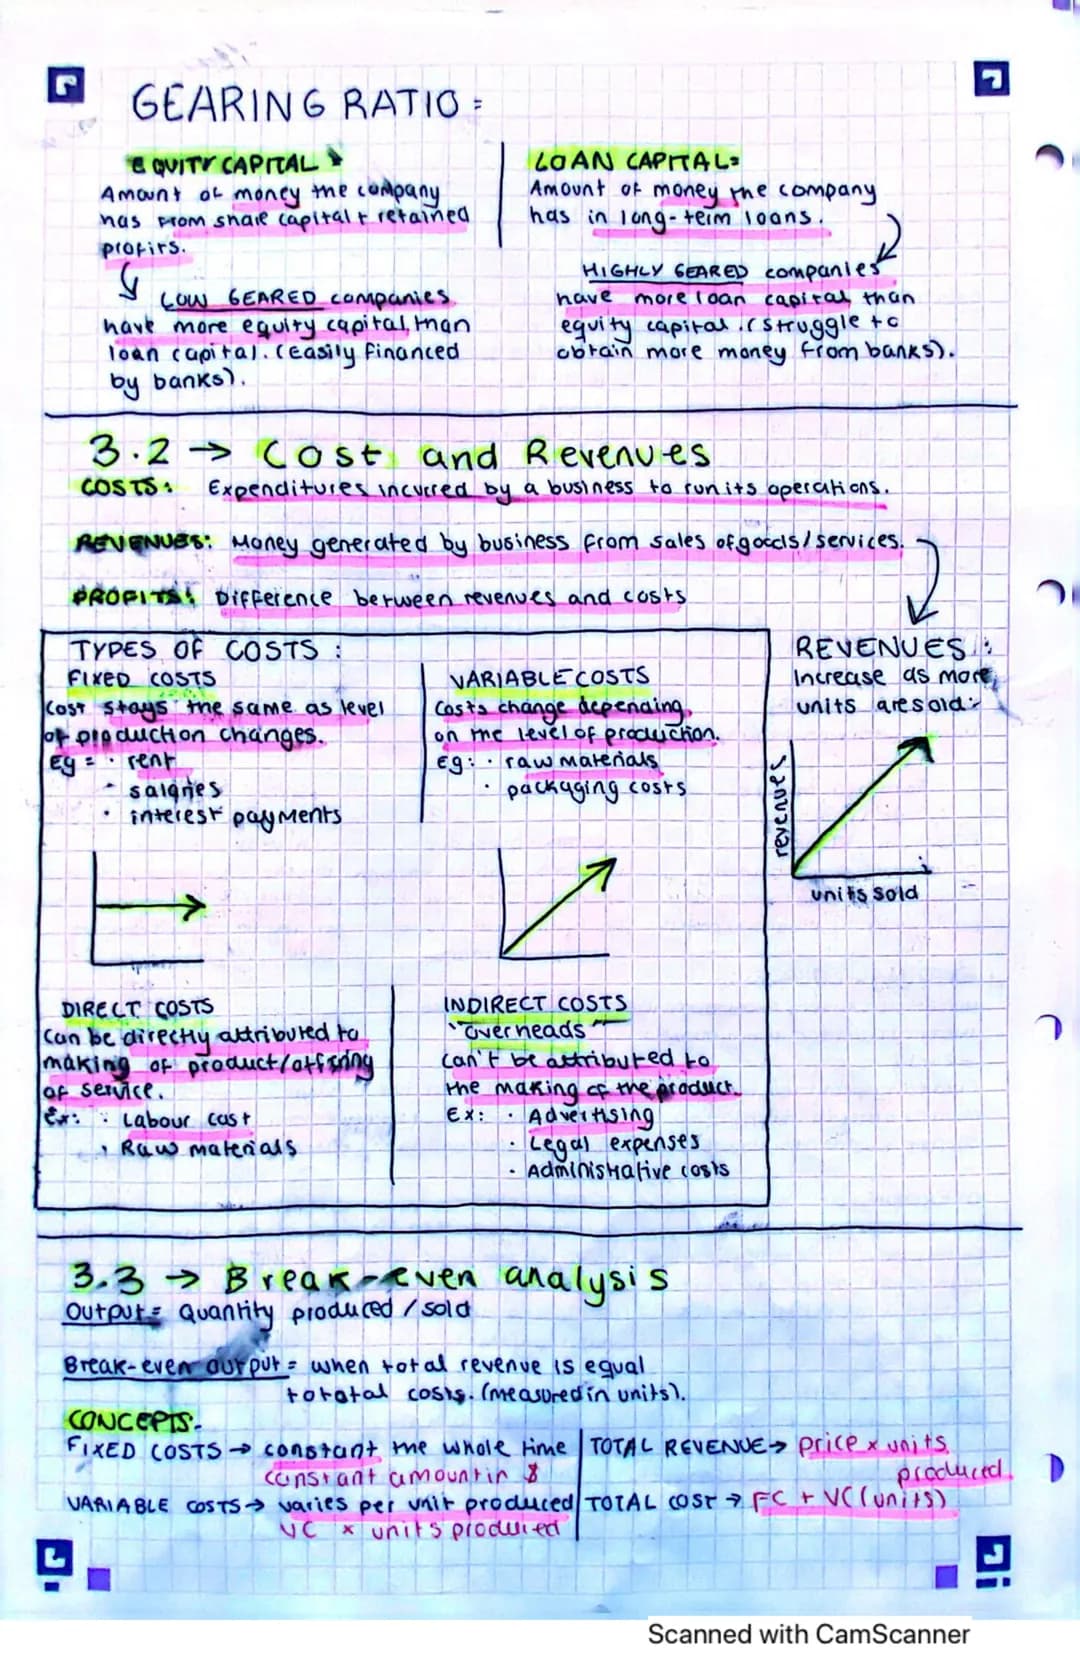 GEARING RATIO =
EQUITY CAPITAL
Amount of money the company
has from share capital + retained
profits.
LOW GEARED companies
have more equity capital than
loan capital. (Easily financed
by banks).
LOAN CAPITAL=
Amount of money the company
has in long-term loans.
HIGHLY GEARED companies
have more loan capital than
equity capital. (struggle to
obtain more money from banks).
3.2 → Cost and Revenues
COSTS: Expenditures incurred by a business to run its operations.
REVENUES: Money generated by business from sales of goods/services.
PROFITS: Difference between revenues and costs
TYPES OF COSTS :
FIXED COSTS
Cost stays the same as level
of production changes.
Eg = · rent
- salaries
· interest payments
VARIABLE COSTS
Costs change depending
on the level of production.
Eg: · raw materials
· packaging costs
REVENUES :
Increase as more
units are sold:
revenues
units sold
DIRECT COSTS
Can be directly attributed to
making of product/offering
of service.
Ex: · Labour cost
· Raw materials
INDIRECT COSTS
"overheads"
Can't be attributed to
the making of the product.
Ex: · Advertising
· Legal expenses
· Administrative costs
3.3 → Break-even analysis
Output = Quantity produced / sold
Break-even output = when total revenue is equal
to total costs. (measured in units).
CONCEPTS:
FIXED COSTS → constant the whole time
constant amount in $
VARIABLE COSTS → varies per unit produced
VC × units produced
TOTAL REVENUE → price × units
produced
TOTAL COST → FC + VC (units)
Scanned with CamScanner